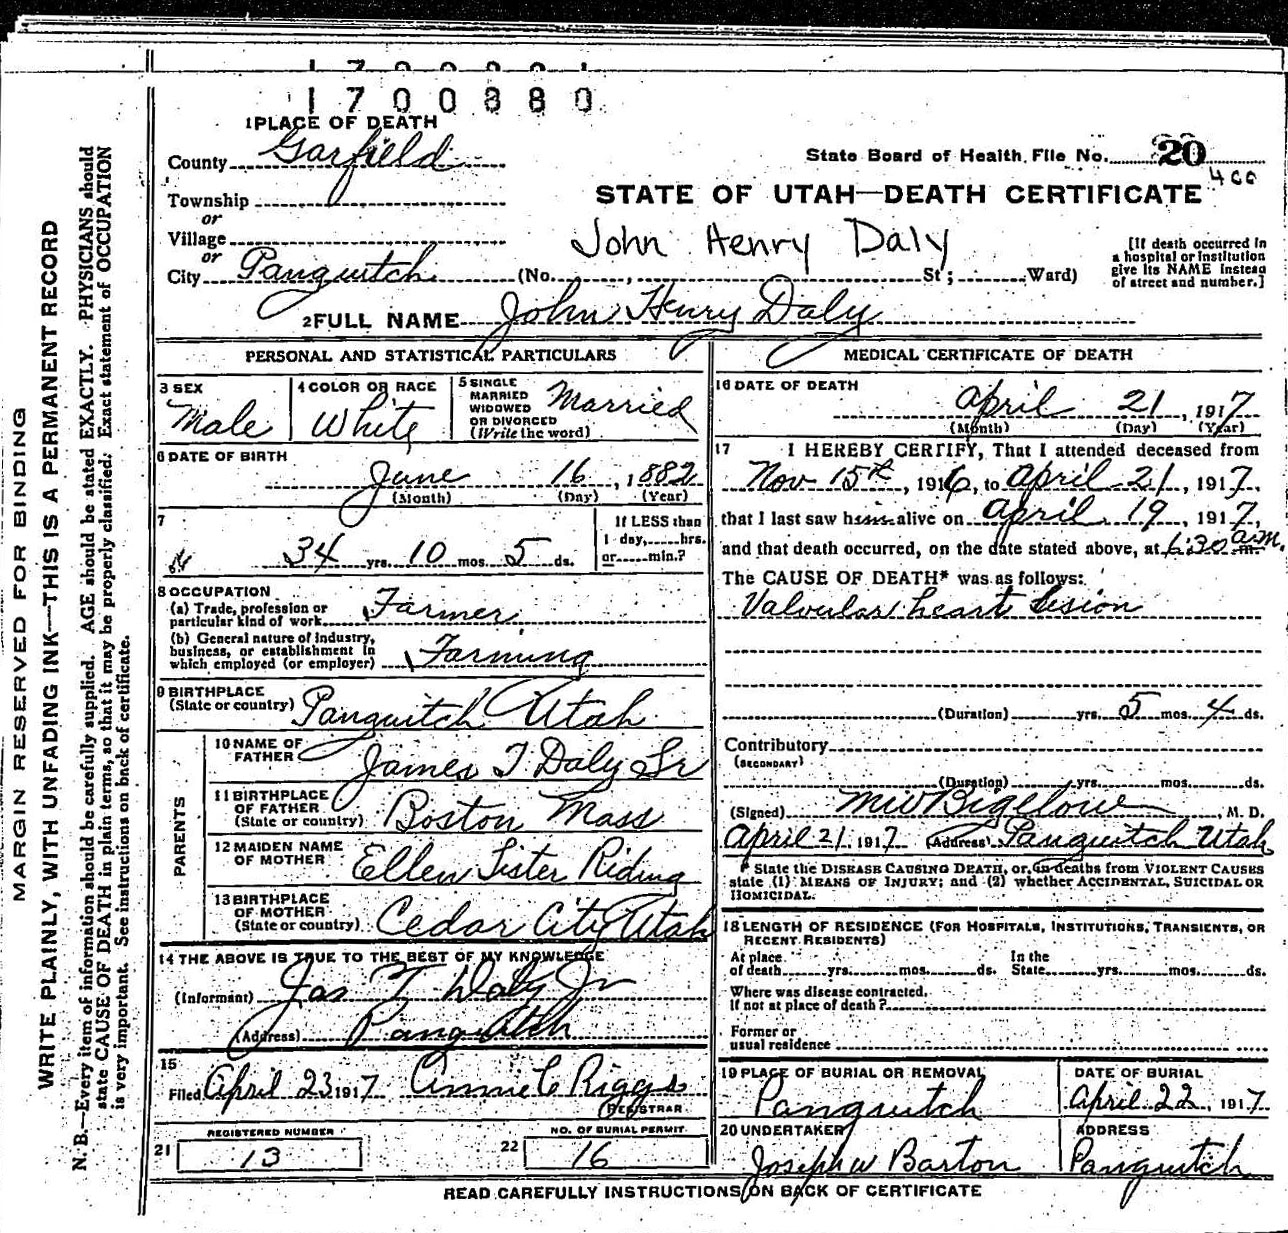 1700880
1 PLACE OF DEATH
County Garfield
State Board of Health File No. 20
400
Township
or
STATE OF UTAH—DEATH CERTIFICATE
Village
or
John Henry Daly
City Panguitch (No. , St; Ward)
[If death occurred in
a hospital or institution
give its NAME instead
of street and number.]
2 FULL NAME John Henry Daly
PERSONAL AND STATISTICAL PARTICULARS
3 SEX
Male
4 COLOR OR RACE
White
5 SINGLE
MARRIED
WIDOWED
OR DIVORCED
(Write the word)
Married
6 DATE OF BIRTH
June 16, 1882
(Month) (Day) (Year)
7
34 yrs. 10 mos. 5 ds.
If LESS than
1 day, hrs.
or min.?
8 OCCUPATION
(a) Trade, profession or
particular kind of work Farmer
(b) General nature of industry,
business, or establishment in
which employed (or employer) Farming
9 BIRTHPLACE
(State or country) Panguitch Utah
PARENTS
10 NAME OF
FATHER James T Daly Sr
11 BIRTHPLACE
OF FATHER
(State or country) Boston Mass
12 MAIDEN NAME
OF MOTHER Ellen Lister Riding
13 BIRTHPLACE
OF MOTHER
(State or country) Cedar City Utah
14 THE ABOVE IS TRUE TO THE BEST OF MY KNOWLEDGE
(Informant) Jas T Daly Jr
(Address) Panguitch
15
Filed April 23 1917 Annie C Riggs
REGISTRAR
REGISTERED NUMBER
21 13
NO. OF BURIAL PERMIT
22 16
MEDICAL CERTIFICATE OF DEATH
16 DATE OF DEATH
April 21, 1917
(Month) (Day) (Year)
17 I HEREBY CERTIFY, That I attended deceased from
Nov 15th, 1916, to April 21, 1917,
that I last saw him alive on April 19, 1917,
and that death occurred, on the date stated above, at 6:30 a.m.
The CAUSE OF DEATH* was as follows:
Valvular heart lesion
(Duration) yrs. 5 mos. 4 ds.
Contributory
(SECONDARY)
(Duration) yrs. mos. ds.
(Signed) MW Bigelow, M. D.
April 21, 1917 (Address) Panguitch Utah
* State the DISEASE CAUSING DEATH, or, in deaths from VIOLENT CAUSES
state (1) MEANS OF INJURY; and (2) whether ACCIDENTAL, SUICIDAL OR
HOMICIDAL.
18 LENGTH OF RESIDENCE (FOR HOSPITALS, INSTITUTIONS, TRANSIENTS, OR
RECENT RESIDENTS)
At place In the
of death yrs. mos. ds. State yrs. mos. ds.
Where was disease contracted,
If not at place of death?
Former or
usual residence
19 PLACE OF BURIAL OR REMOVAL
Panguitch
DATE OF BURIAL
April 22, 1917
20 UNDERTAKER
Joseph W Barton
ADDRESS
Panguitch
READ CAREFULLY INSTRUCTIONS ON BACK OF CERTIFICATE
MARGIN RESERVED FOR BINDING
WRITE PLAINLY, WITH UNFADING INK—THIS IS A PERMANENT RECORD
N. B.—Every item of information should be carefully supplied. AGE should be stated EXACTLY. PHYSICIANS should
state CAUSE OF DEATH in plain terms, so that it may be properly classified. Exact statement of OCCUPATION
is very important. See instructions on back of certificate.